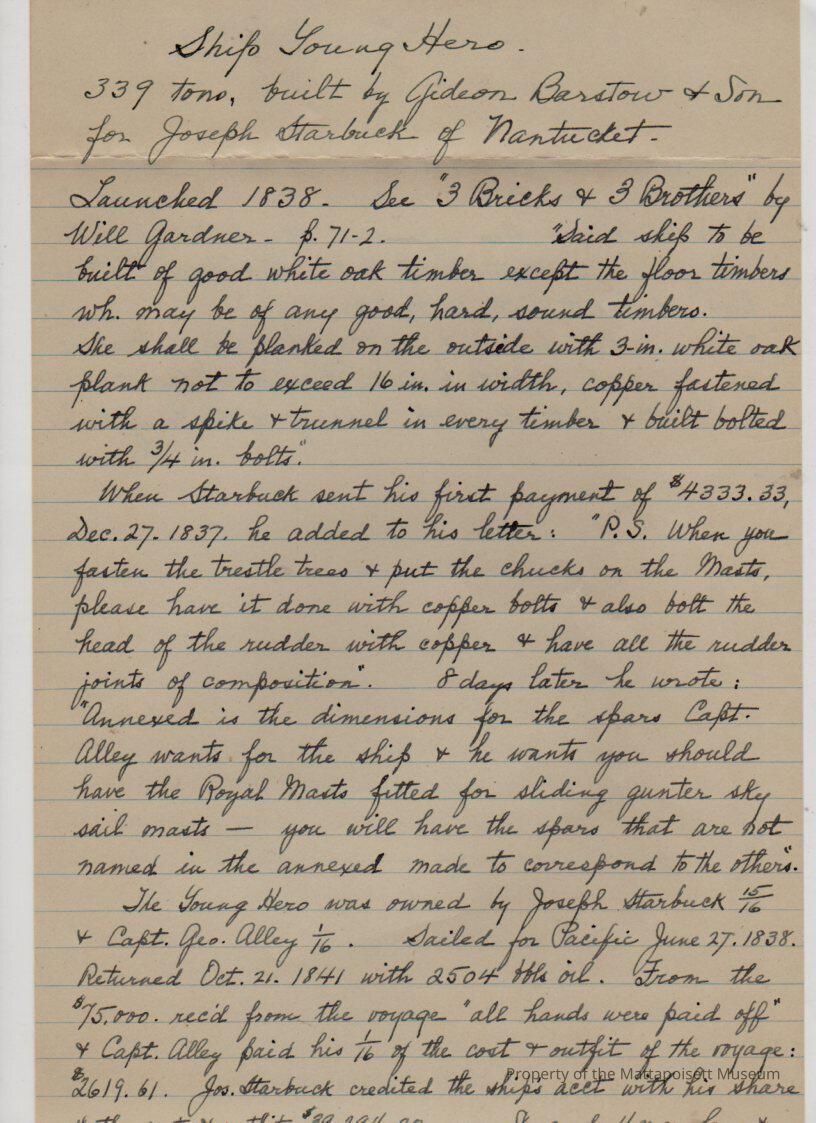 Ship Young Hero.
339 tons, built by Gideon Barstow & Son
for Joseph Starbuck of Nantucket.
Launched 1838. See "3 Bricks & 3 Brothers" by
Will Gardner - p. 71-2. "Said ship to be
built of good white oak timber except the floor timbers
wh. may be of any good, hard, sound timbers.
She shall be planked on the outside with 3-in. white oak
plank not to exceed 16 in. in width, copper fastened
with a spike & trunnel in every timber & built bolted
with 3/4 in. bolts".
When Starbuck sent his first payment of $4333.33,
Dec. 27. 1837. he added to his letter: "P.S. When you
fasten the trestle trees & put the chucks on the Masts,
please have it done with copper bolts & also bolt the
head of the rudder with copper & have all the rudder
joints of composition". 8 days later he wrote:
"Annexed is the dimensions for the spars Capt.
Alley wants for the ship & he wants you should
have the Royal Masts fitted for sliding gunter sky
sail masts — you will have the spars that are not
named in the annexed made to correspond to the others".
The Young Hero was owned by Joseph Starbuck 15/16
& Capt. Geo. Alley 1/16. Sailed for Pacific June 27. 1838.
Returned Oct. 21. 1841 with 2504 bbls oil. From the
$75.000. rec'd from the voyage "all hands were paid off"
& Capt. Alley paid his 1/16 of the cost & outfit of the voyage:
$2619.61. Jos. Starbuck credited the ship's acct with his share
Property of the Mattapoisett Museum